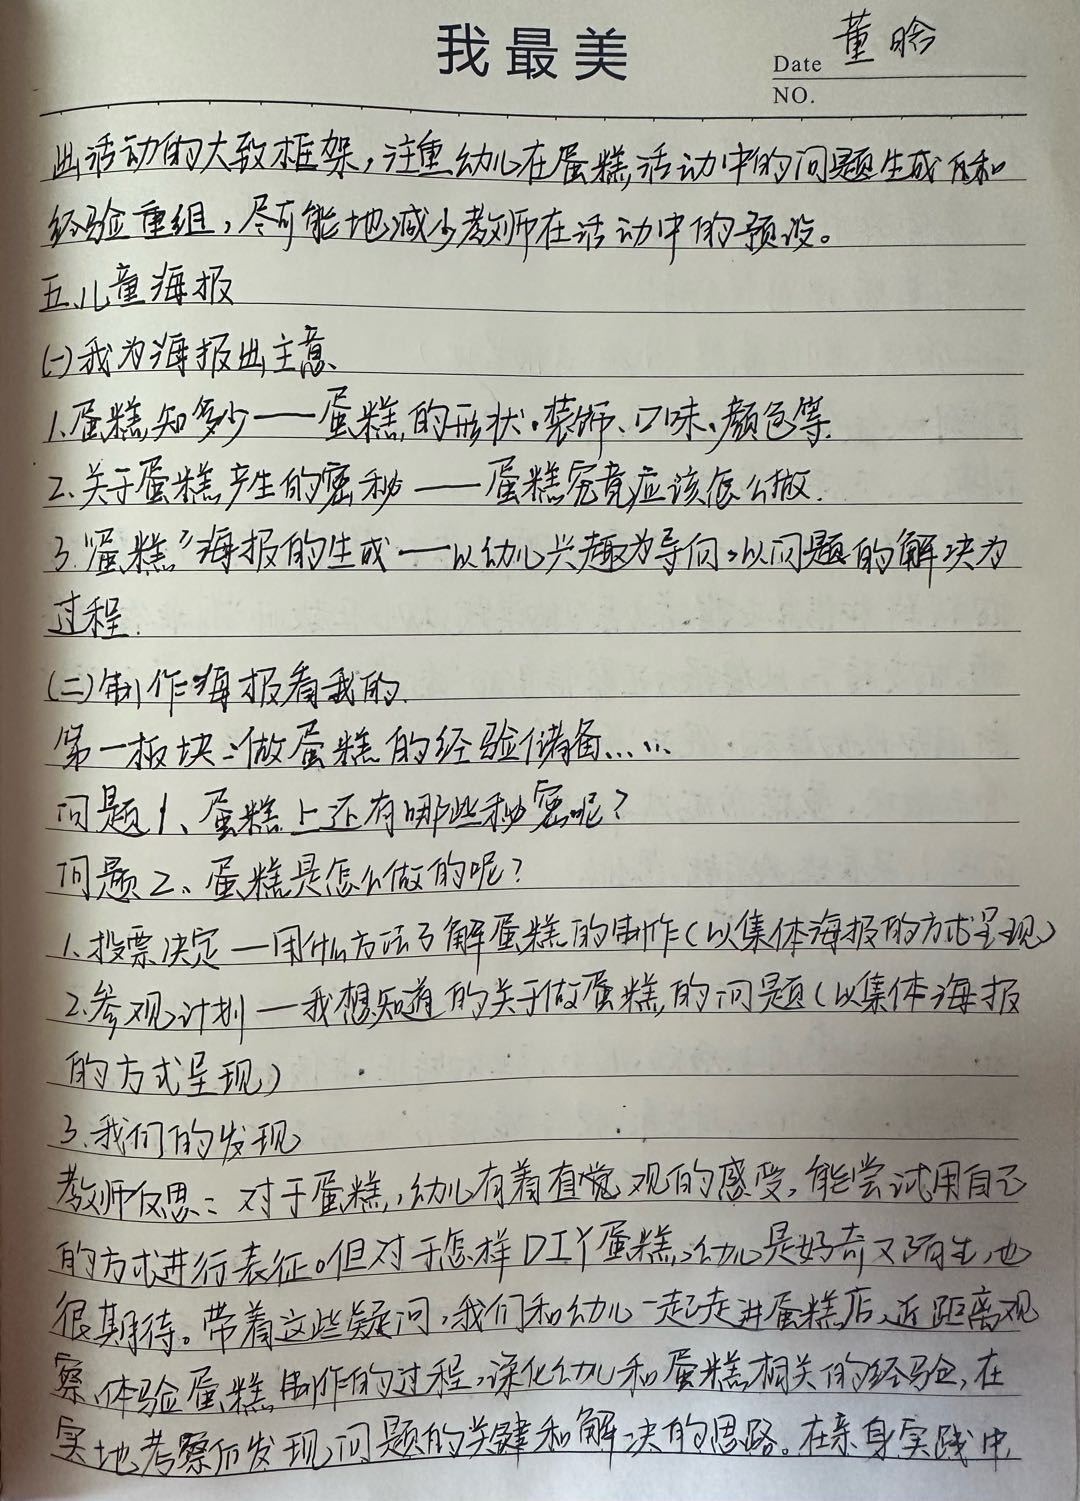 我最美
Date 董晗
NO.
此活动的大致框架,注重幼儿在蛋糕活动中的问题生成和
经验重组,尽可能地减少教师在活动中的预设。
五、儿童海报
(一)我为海报出主意、
1.蛋糕知多少——蛋糕的形状、装饰、口味、颜色等.
2.关于蛋糕产生的密秘——蛋糕究竟应该怎么做.
3.“蛋糕”海报的生成——以幼儿兴趣为导向,以问题的解决为
过程.
(二)制作海报看我的.
第一板块:做蛋糕的经验储备……
问题1、蛋糕上还有哪些秘密呢?
问题2、蛋糕是怎么做的呢?
1.投票决定——用什么方法了解蛋糕的制作(以集体海报的方式呈现)
2.参观计划——我想知道的关于做蛋糕的问题(以集体海报
的方式呈现)
3.我们的发现
教师反思:对于蛋糕,幼儿有着直觉观的感受,能尝试用自己
的方式进行表征。但对于怎样DIY蛋糕,幼儿是好奇又陌生,也
很期待。带着这些疑问,我们和幼儿一起走进蛋糕店,近距离观
察、体验蛋糕制作的过程,深化幼儿和蛋糕相关的经验,在
实地考察后发现问题的关键和解决的思路。在亲身实践中